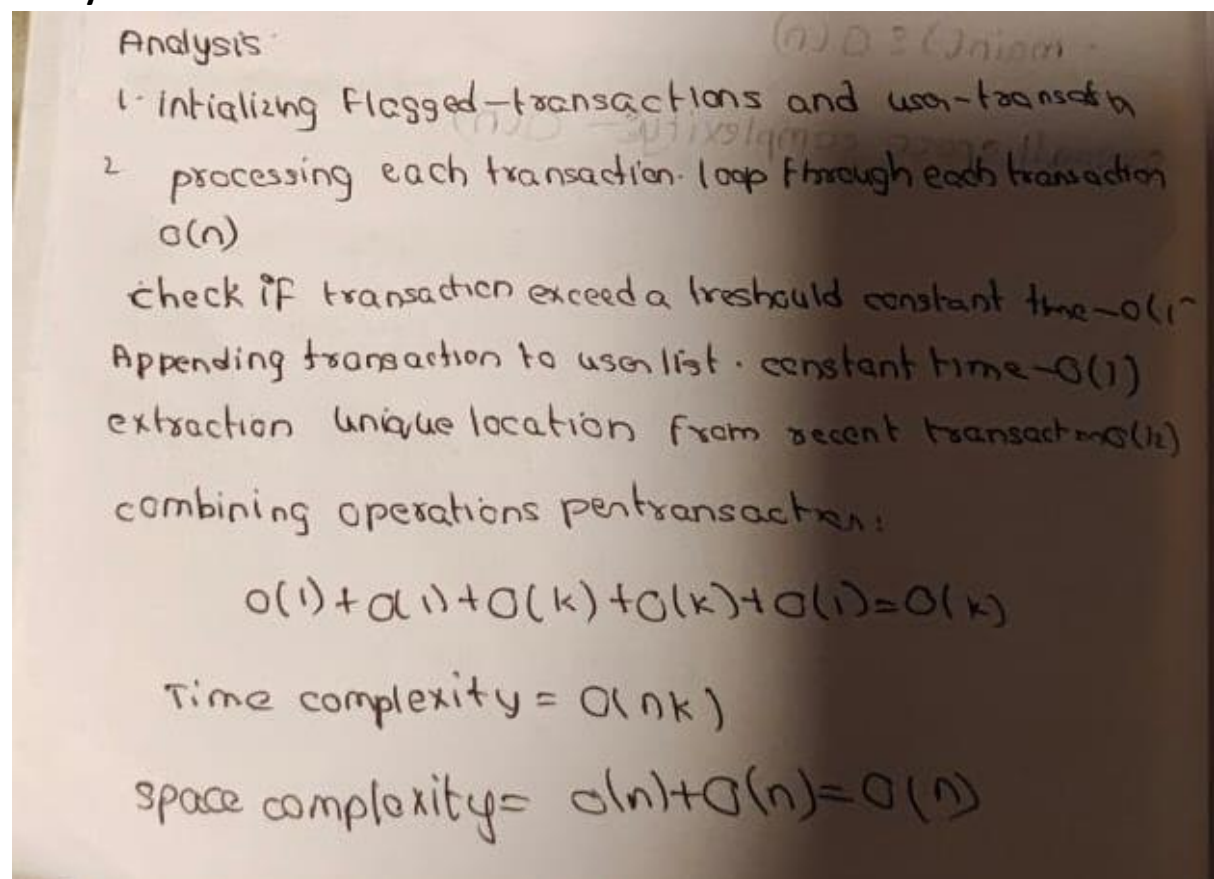 Analysis
1. intializing Flagged-transactions and user-
2 processing each transaction. loop through each transaction
O(n)
check if transaction exceed a treshould constant time-O(1
Appending transaction to user list. constant time-O(1)
extraction unique location from recent O(k)
combining operations per transaction:
O(1)+O(1)+O(k)+O(k)+O(1)=O(k)
Time complexity = O(nk)
space complexity= O(n)+O(n)=O(n)